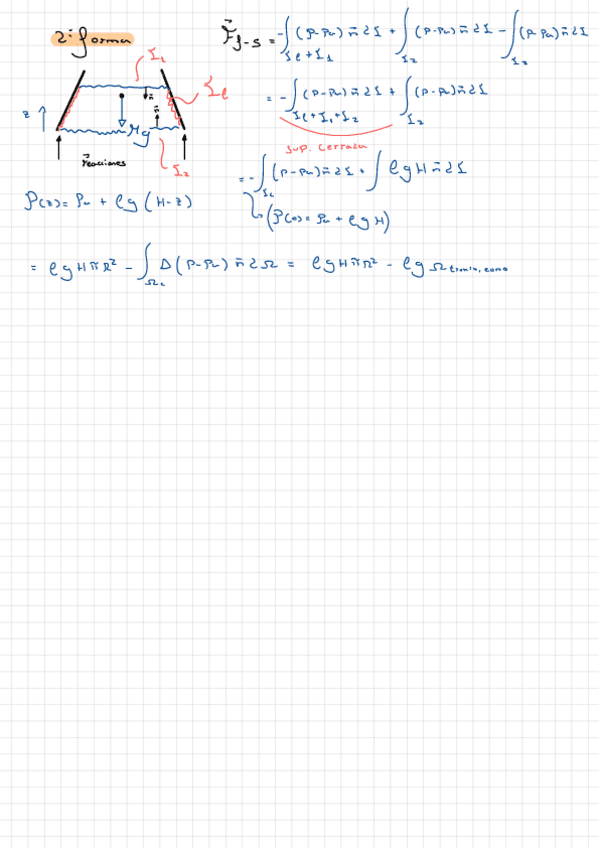 2ª forma
Σ₁
Σℓ
n̄
n̄
z
Mg
reacciones
Σ₂
F⃗f-s = -∫Σℓ+Σ₁ (P-Pa) n̄ dΣ + ∫Σ₂ (P-Pa) n̄ dΣ - ∫Σ₂ (P-Pa) n̄ dΣ
= -∫Σℓ+Σ₁+Σ₂ (P-Pa) n̄ dΣ + ∫Σ₂ (P-Pa) n̄ dΣ
sup. cerrada
= -∫Σc (P-Pa) n̄ dΣ + ∫ ρgH n̄ dΣ
P(z) = Pa + ρg (H-z)
(P(0) = Pa + ρgH)
= ρgHπR² - ∫Ωc Δ(P-Pa) n̄ dΩ = ρgHπR² - ρg Ω tronco, cono